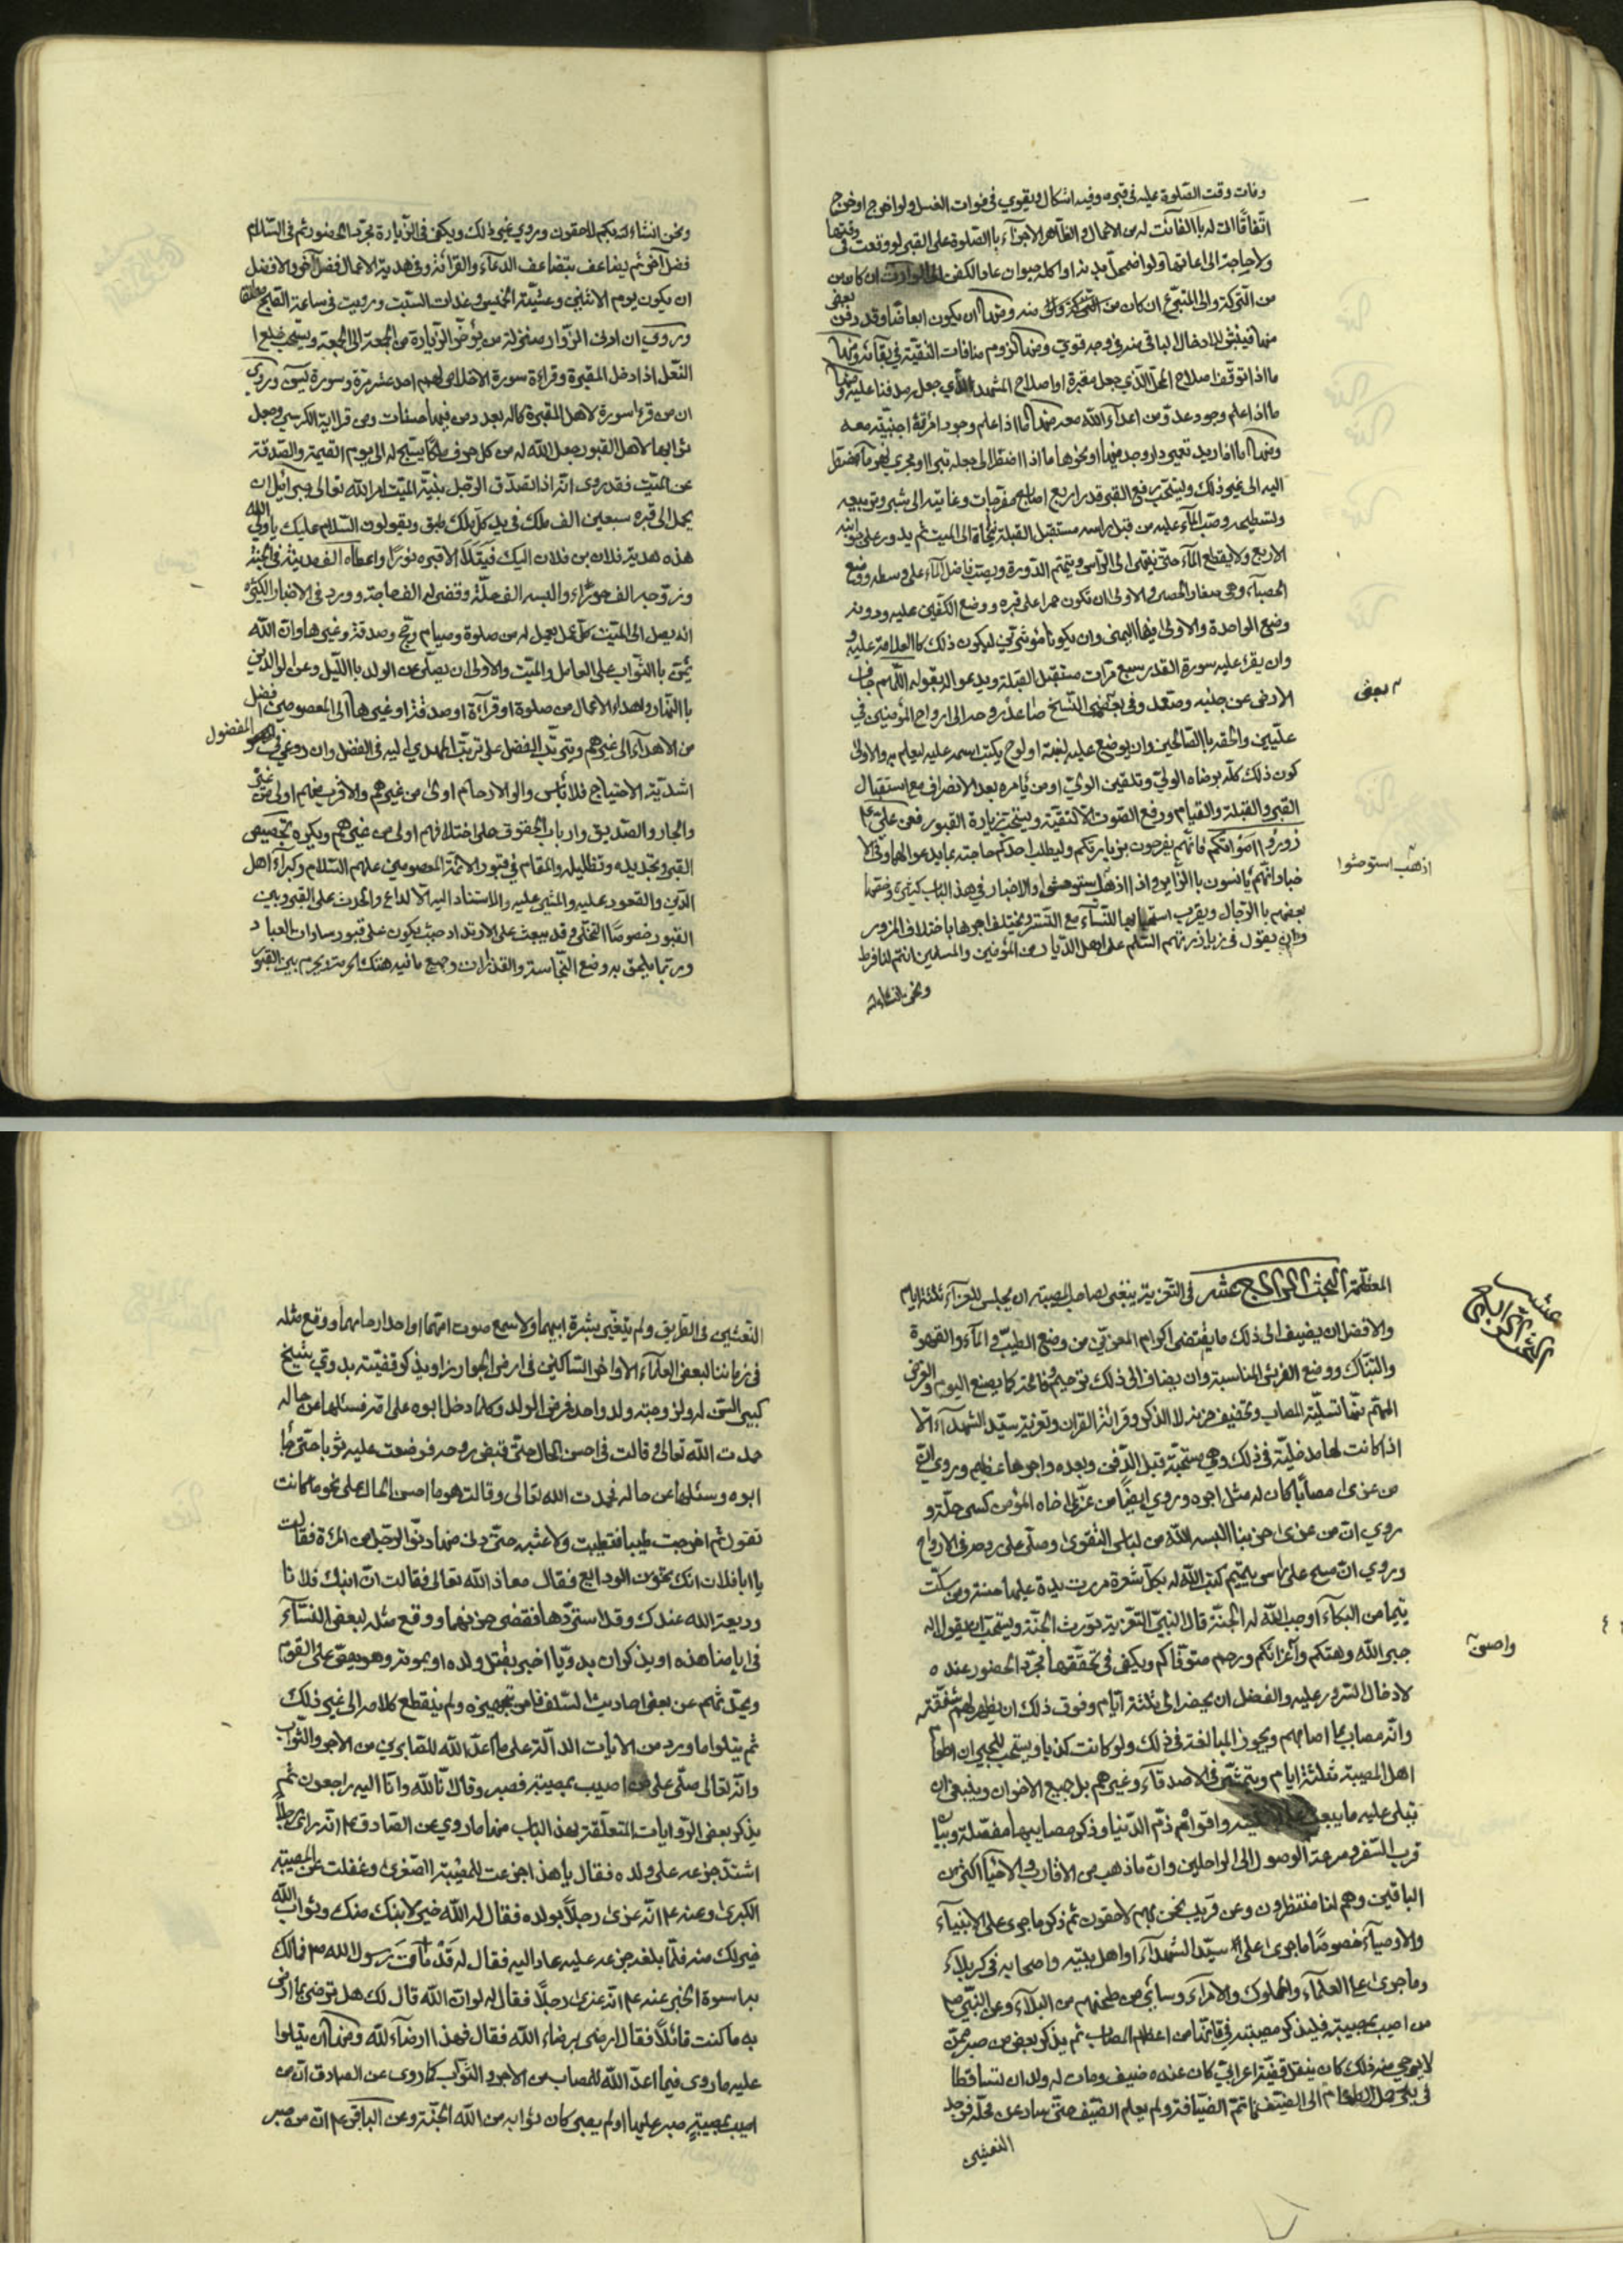 وفات وقت الصلوة عليه في قبره وفيه اشكال ويقوى في فوات الغسل ولو اخرج او خرج
اتفاقا الى له باالفائت له من الاعمال والظاهر الاجزاء باالصلوة على القبر لو وقعت في وقتها
ولا حاجة الى اعادتها ولو اضمحل بدنه او اكله حيوان عاد الكفن الى الوارث ان كان من
من التركة والى المتبرع ان كان من التركة والى منه ومنها ان يكون ابعاضا وقد دفن بعض
منها فينبش لادخال الباقي منه في وجه قوي ومنها لزوم منافات التقية في بقائه ومنها
ما اذا توقف اصلاح المحل الذي جعل مقبرة او اصلاح المشهد الذي جعل مدفنا عليه ومنها
ما اذا علم وجود عدو من اعداء الله معه ومنها ما اذا علم وجود امرئة اجنبية معه
ومنها ما اذا اريد تعمير دار وجد فيها او نحوها ما اذا اضطر الى جعله تبرا او مجرى نهر مما يضطر
اليه الى غير ذلك ويستحب رفع القبر قدر اربع اصابع مفرجات وغايته الى شبر وتربيعه
وتسطيحه وصب الماء عليه من قبل راسه مستقبل القبلة الى الميت ثم يدور على جوانبه
الاربع ولا يقطع الماء حتى ينتهي الى الراس ويتمم الدورة ويصب فاضل الماء على وسطه ووضع
الحصباء وهي صغار الحصى والاولى ان تكون حمرا على قبره ووضع الكفين عليه ودونه
وضع الواحدة والاولى فيها اليمنى وان يكونا مؤثرتين ليكون ذلك كاالعلامة عليه و
وان يقرء عليه سورة القدر سبع مرات مستقبل القبلة ويدعو الد بقوله اللهم جاف
الارض عن جنبيه وصعد وفي بعض النسخ صاعد روحه الى ارواح المؤمنين في
عليين والحقه باالصالحين وان يوضع عليه لبنة او لوح يكتب اسمه عليه ليعلم به والاولى
كون ذلك كله برضاء الولي وتلقين الولي او من يأمره بعد الانصراف مع استقبال
القبر والقبلة والقيام ورفع الصوت الا لتقية ويستحب زيارة القبور فعن علي ع
زوروا امواتكم فانهم يفرحون بزيارتكم وليطلب احدكم حاجته بما يدعو الهما وفي الا
خبار انهم يأنسون باالزاير واذا اذهب استوحشوا والاخبار في هذا الباب كثيرة وخصها
بعضهم باالرجال ويقرب استحبابها للنساء مع التستر ويختلف اجرها باختلاف المزور
وان يقول في زيارتهم السلم على اهل الديار من المؤمنين والمسلمين انتم لنا فرط
ونحن انشاء الله
بعض
اذهب استوحشوا
ونحن انشاء الله بكم لاحقون وروي غير ذلك ويكفي في الزيارة مجرد الحضور ثم في السلام
فضل آخر ثم يضاعف بتضاعف الدعاء والقرائة وفي هدية الاعمال فضل آخر والافضل
ان يكون يوم الاثنين وعشية الخميس وغدات السبت ورويت في ساعة القلج مطلقا
وروي ان اولى الزوار منزلة من يؤخر الزيارة من الجمعة الى الجمعة ويستحب خلع ا
النعل اذا دخل المقبرة وقراءة سورة الاخلاص لهم احد عشر مرة وسورة ليس وروي
ان من قرء سورة لاهل المقبرة كاله بعد دمن فيها حسنات ومن قرا اية الكرسي وجعل
ثوابها لاهل القبور جعل الله له من كل حرف ملكا يسبح له الى يوم القيمة والصدقة
عن الميت فقد روى انه اذا تصدق الرجل بنية الميت امر الله تعالى جبرائيل ان
يحمل الى قبره سبعين الف ملك في يد كل ملك طبق ويقولون السلام عليك يا ولي الله
هذه هدية فلان بن فلان اليك فيتلألأ قبره نورا واعطاه الف مدينة في الجنة
وزوجه الف حوراء والبسه الف حلة وقضى له الف حاجة وورد في الاخبار الكثيرة
انه يصل الى الميت كل عمل يعمل له من صلوة وصيام وحج وصدقة وغيرها وان الله
يمن باالثواب على العامل والميت والاولى ان يصلى عن الولد باالليل وعن الوالدين
باالنهار واهداء الاعمال من صلوة او قرآءة او صدقة او غيرها الى المعصومين افضل
من الاهداء الى غيرهم ويترتب الفضل على ترتب المهدي اليه في الفضل وان روعي في المفضول
اشدية الاحتياج فلا بأس والو الارحام اولى من غيرهم والاقرب منهم اولى من غيره
والجار والصديق وارباب الحقوق على اختلافهم اولى من غيرهم ويكره تجصيص
القبر وتجديده وتظليله والمقام في قبور الائمة المعصومين عليهم السلام وكبراء اهل
الدين والقعود عليه والمشي عليه والاستناد اليه الا لداع والحدث على القبر وبين
القبور خصوصا التخلي وقد يبعث على الارتداد حيث يكون على قبور سادات العباد
وربما يلحق به وضع النجاسة والقذارات وجميع ما فيه هتك الحرمة ويحرم بين القبور
المعظمة البحث الرابع عشر في التعزية ينبغي لصاحب المصيبة ان يجلس للعزآء ثلثة ايام
والافضل ان يضيف الى ذلك ما يقتضى اكرام المعزين من وضع الطيب والمآء والقهوة
والتناك ووضع الفرش المناسبة وان يضاف الى ذلك ترحيم وفاتحة كما يصنع اليوم والغرض
المهم منها تسلية المصاب وتخفيف حزنه لا الذكر وقرائة القران وتعزية سيد الشهدآء الا
اذا كانت لها مدخلية في ذلك وهي مستحبة قبل الدفن وبعده واجرها عظيم وروي ان
من عزى مصابا كان له مثل اجره وروي ايضا من عزى اخاه المؤمن كسى حلة و
روي ان من عزى حزينا البسه الله من لباس التقوى وصلى على روحه في الارواح
وروي ان من مسح على راس يتيم كتب الله له بكل شعرة مرت يده عليها حسنة ومن سكت
يتيما من البكآء اوجب الله له الجنة قال النبي التعزية تورث الجنة ويستحب ان يقول له
جبر الله وهنكم واحسن عزائكم ورحم متوفاكم ويكفي في تحققها مجرد الحضور عنده
لادخال لسرور عليه والفضل ان يحضر الى ثلثة ايام وفوق ذلك ان يظهر لهم شفقته
وانه مصاب بما اصابهم ويجوز المبالغة في ذلك ولو كانت كذبا ويستحب للجيران اطعام
اهل المصيبة ثلثة ايام ويتمشى في الاصدقآء وغيرهم بل جميع الاخوان وينبغي ان
تتلى عليه ما يبعث واقواهم ذم الدنيا وذكر مصايبها مفصلة وبيان
قرب السفر وسرعة الوصول الى الراحلين وان ما ذهب من الاقارب والاحبا اكثر من
الباقين وهم لنا منتظرون وعن قريب نحن بهم لاحقون ثم ذكر ما جرى على الانبيآء
والاوصيآء خصوصا ما جرى على سيد الشهدآء او اهل بيته واصحابه في كربلاء
وما جرى على العلمآء والملوك والامراء وسائر من طحنهم من البلآء وعن النبي ص
من اصيب بمصيبة فليذكر مصيبته في فانها من اعظم المصائب ثم يذكر بعض من صبر ممن
لا يرجى منه ذلك كان ينقل قضية اعرابي كان عنده ضيف ومات له ولدان تساقطا
في بئر حمل الطعام الى الضيف فاتم الضيافة ولم يعلم الضيف حتى سار عن محله فوجد
النعشين
عشر
البحث الرابع
واحسن
النعشين في الطريق ولم يتغير بشرة ابيهما ولا سمع صوت امهما او احد ارحامهما ووقع مثله
في زماننا لبعض العلمآء الاواخر الساكنين في ارض الجواز او يذكر قضية بدوي شيخ
كبير السن له ولزوجته ولد واحد فمرض الولد وكلما دخل ابوه على امه فسئلها عن حاله
حمدت الله تعالى وقالت في احسن الحال حتى قبض روحه فوضعت عليه ثوبا حتى جاء
ابوه وسئلها عن حاله فحمدت الله تعالى وقالت هو ما احسن الحال على نحو ما كانت
تقول ثم اخرجت طيبا فتطيبت ولاعبته حتى دنى منها دنو الرجل من المرئة فقالت
يا ابا فلان انك تخون الودايع فقال معاذ الله تعالى فقالت ان ابنك فلانا
وديعة الله عندك وقد استردها فقضى حزنهما ووقع مثله لبعض النسآء
في ايامنا هذه او يذكر ان بدويا اخبر بقتل ولده او بموته وهو يقص على القوم
ويحدثهم عن بعض احاديث السلف فامر بتجهيزه ولم ينقطع كلامه الى غير ذلك
ثم يتلوا ما ورد من الايات الدالة على ما اعد الله للصابرين من الاجر والثواب
وانه تعالى صلى على من اصيب بمصيبة فصبر وقال انا لله وانا اليه راجعون ثم
يذكر بعض الروايات المتعلقة بهذ الباب منها ما روي عن الصادق ع انه راى رجلا
اشتد جزعه على ولده فقال يا هذا جزعت للمصيبة الصغرى وغفلت عن المصيبة
الكبرى وعنه ع انه عزى رجلا بولده فقال له الله خير لابنك منك وثواب الله
خير لك منه فلما بلغه جزعه عليه عاد اليه فقال له قد مات رسول الله ص فما لك
به اسوة الخبر عنه ع انه عزى رجلا فقال له لو ان الله قال لك هل ترضى بما ارضى
به ما كنت قائلا فقال ارضى برضاء الله فقال فهذا ارضآء لله ومنها ان يتلوا
عليه ما روى فيما اعد الله للمصاب من الاجر والثواب كما روى عن الصادق ان من
اصيب بمصيبة صبر عليها او لم يصبر كان ثوابه من الله الجنة وعن الباقر ع ان من صبر